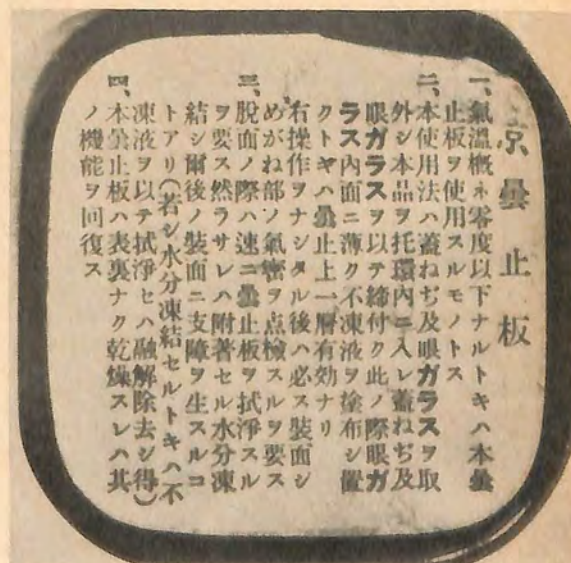 京曇止板
一、氣溫概ネ零度以下ナルトキハ本曇
止板ヲ使用スルモノトス
二、本使用法ハ蓋ねぢ及眼ガラスヲ取
外シ本品ヲ托環內ニ入レ蓋ねぢ及
眼ガラスヲ以テ締付ク此ノ際眼ガ
ラス內面ニ薄ク不凍液ヲ塗布シ置
クトキハ曇止上一層有効ナリ
右操作ヲナシタル後ハ必ス裝面シ
めがね部ノ氣密ヲ点檢スルヲ要ス
三、脫面ノ際ハ速ニ曇止板ヲ拭淨スル
ヲ要ス然ラサレハ附著セル水分凍
結シ爾後ノ裝面ニ支障ヲ生スルコ
トアリ(若シ水分凍結セルトキハ不
凍液ヲ以テ拭淨セハ融解除去シ得)
四、本曇止板ハ表裏ナク乾燥スレハ其
ノ機能ヲ回復ス